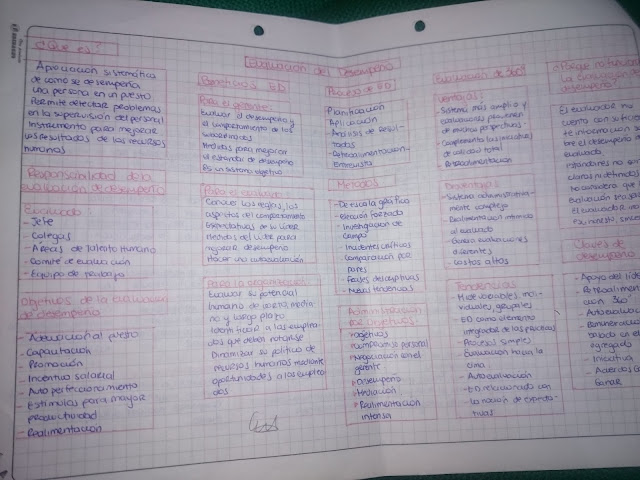 ¿Qué es?
Apreciación sistemática
de como se desempeña
una persona en un puesto
Permite detectar problemas
en la supervisión del personal
Instrumento para mejorar
los resultados de los recursos
humanos
Responsabilidad de la
evaluación de desempeño
Evaluado
- Jefe
- Colegas
- Áreas de talento humano
- Comite de evaluación
- Equipo de trabajo
Objetivos de la evaluación
de desempeño
- Adecuación al puesto
- Capacitación
- Promoción
- Incentivo salarial
- Auto perfeccionamiento
- Estimulos para mayor
productividad
- Realimentación
Evaluación del Desempeño
Beneficios ED
Para el gerente:
Evaluar el desempeño y
el comportamiento de los
Medidas para mejorar
el estandar de desempeño
Es un sistema objetivo
Conocer las reglas, los
aspectos del comportamiento
Expectativas de su líder
Medidas del líder para
mejorar desempeño
Hacer una autoevaluación
Para la organización
Evaluar su potencial
humano de corto, media-
no y largo plazo
Identificar a los emplea-
dos que deben rotarse
Dinamizar su política de
recursos humanos mediante
oportunidades a los emplea
dos
Proceso de ED
Planificación
Aplicación
- Análisis de Resul-
tados
- Retroalimentación
- Entrevista
Métodos
- De escala gráfico
- Elección forzada
- Investigación de
Campo
- Incidentes críticos
Comparación por
pares
- Frases descriptivas
Administración
por objetivos
- Objetivos
- Compromiso personal
- Negociación con el
gerente
- Desempeño
- Medición
- Realimentación
intensa
Evaluación de 360°
Ventajas:
- Sistema más amplio y
evaluaciones provienen
de muchas perspectivas
- Complementa las iniciativas
de calidad total
- Retroalimentación
- Sistema administrativa-
mente complejo
al evaluado
- Genera evaluaciones
diferentes
- Costos altos
Tendencias
viduales, grupales
- ED como elemento
integrador de las practicas
- Procesos simples
Evaluación hacia la
cima
- Autoevaluación
- ED relacionado con
la noción de expecta-
tivas
la evaluación de
desempeño
El evaluador no
cuenta con suficien
te información so
bre el desempeño del
evaluado
- Estandares no son
claros ni definidos
No considera que
El evaluador no
es honesto, sincero
Claves de
desempeño
- Apoyo del líder
- Retroaliment
ación 360°
- Autoevaluación
- Remuneración
basada en el
agregado
- Iniciativa
- Acuerdos Ganar
Ganar